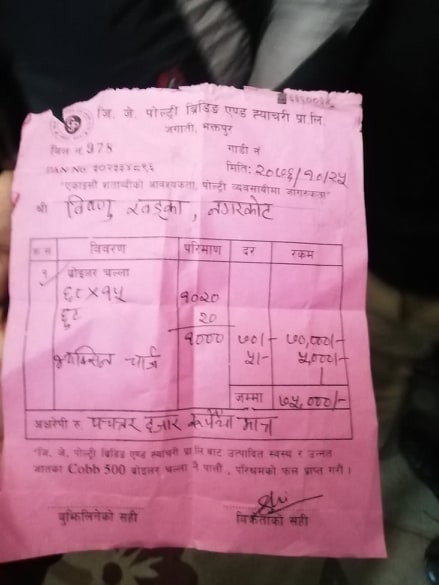 जि. जे. पोल्ट्री ब्रिडिङ एण्ड ह्याचरी प्रा.लि
जगाती, भक्तपुर
बिल नं 978 गाडी नं
मिति: २०७६/१०/२५
"एकाइसौं शताब्दीको आवश्यकता, पोल्ट्री व्यवसायीमा जागरुकता"
श्री विष्णु खड्का, नगरकोट
क्र.सं. विवरण परिमाण दर रकम
१ ब्रोइलर चल्ला
६८ X १५ १०२०
छुट २०
१००० ७०/- ७०,०००/-
भ्याक्सिन चार्ज ५/- ५,०००/-
जम्मा ७५,०००/-
अक्षरेपी रु पचहत्तर हजार रूपैयाँ मात्र
"जि. जे. पोल्ट्री ब्रिडिङ एण्ड ह्याचरी प्रा.लि बाट उत्पादित स्वस्थ र उन्नत
जातका Cobb 500 ब्रोइलर चल्ला नै पालौं, परिश्रमको फल प्राप्त गरौं।
बुझिलिनेको सही बिक्रेताको सही